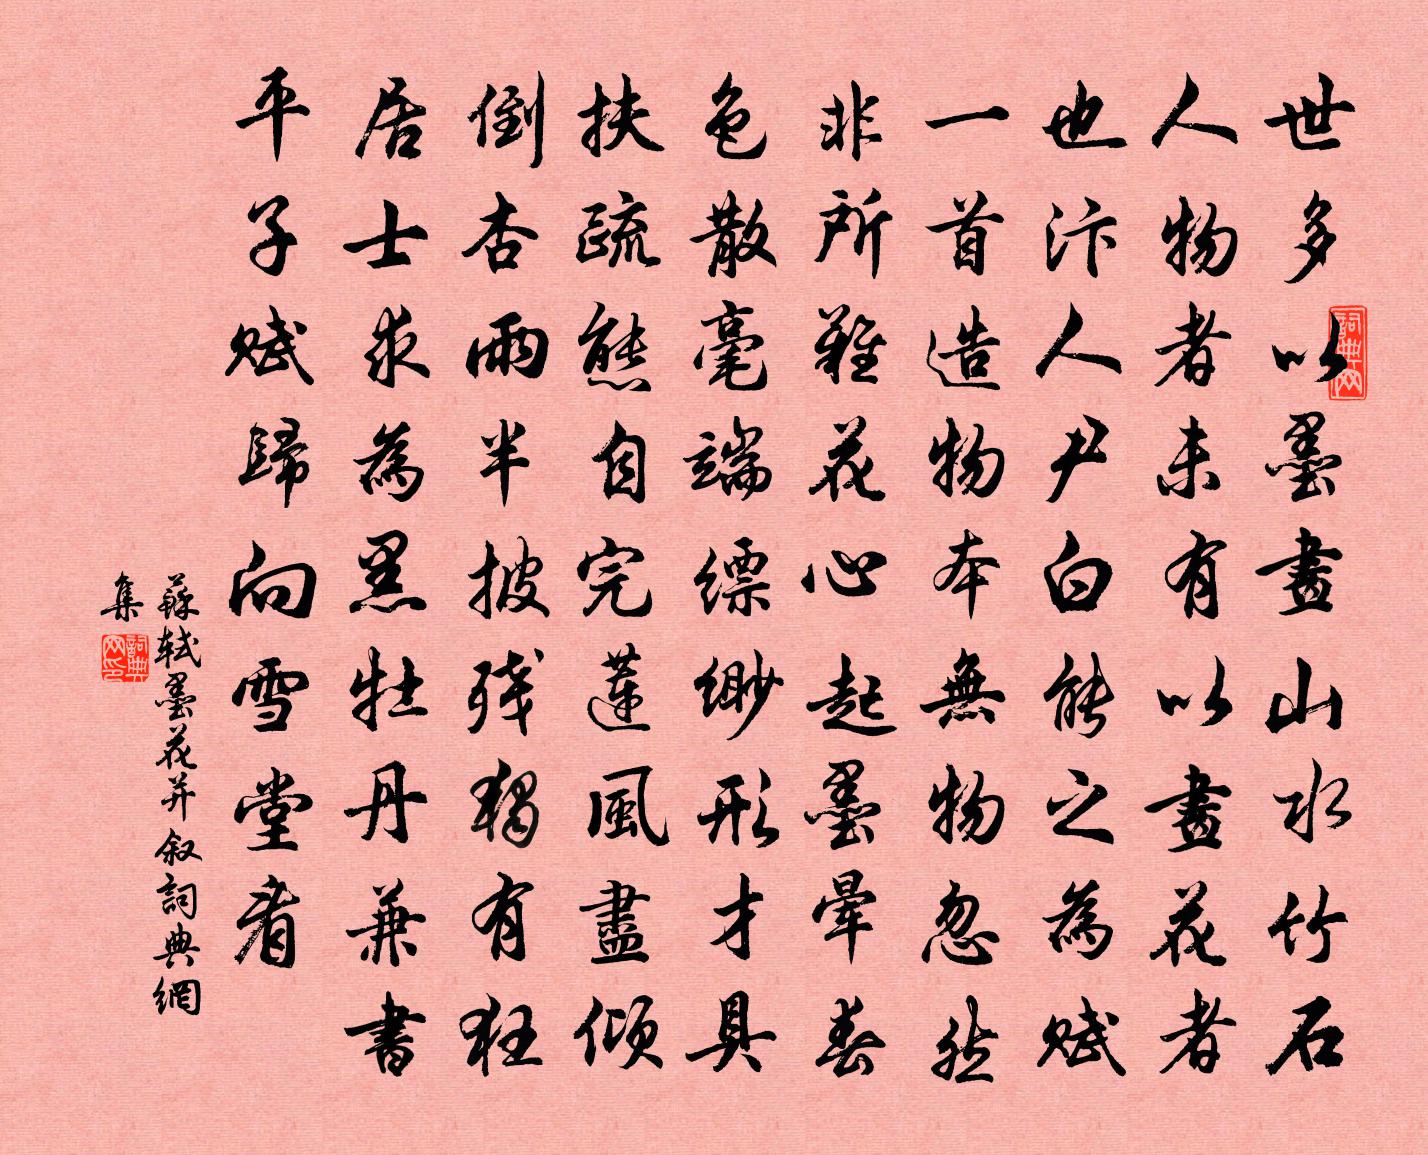 世多以墨畫山水竹石
人物者未有以畫花者
也汴人尹白能之為賦
一首造物本無物忽然
非所難花心起墨暈春
色散毫端縹緲形才具
扶疏態自完蓮風盡傾
倒杏雨半披殘獨有狂
居士求為黑牡丹兼書
平子賦歸向雪堂看
蘇軾墨花并叙詞典網
集
詞典网
詞典网印